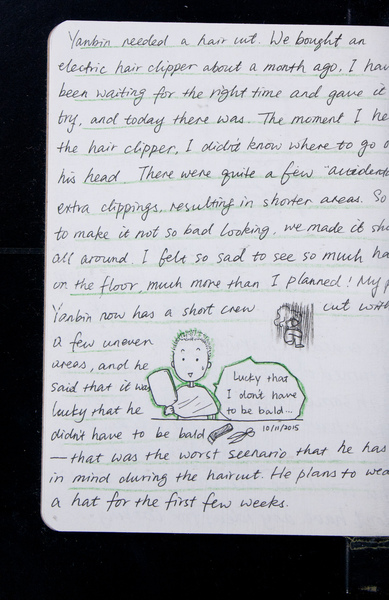 Yanbin needed a hair cut. We bought an
electric hair clipper about a month ago, I hav
been waiting for the right time and gave it
try, and today there was. The moment I he
the hair clipper, I didn't know where to go o
his head. There were quite a few "accidenta
extra clippings, resulting in shorter areas. So
to make it not so bad looking, we made it sho
all around. I felt so sad to see so much ha
on the floor, much more than I planned! My p
Yanbin now has a short crew cut with
a few uneven
areas, and he
said that it wa
lucky that he
didn't have to be bald
Lucky that
I don't have
to be bald...
10/11/2015
—that was the worst scenario that he has
in mind during the haircut. He plans to wea
a hat for the first few weeks.